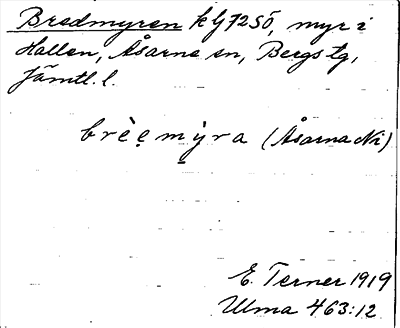 Bredmyren k G7 2SÖ, myr i
Hallen, Åsarne sn, Bergs tg,
Jämtl. l.
brèe̱mỳra (Åsarna Ni)
E. Terner 1919
Ulma 463:12